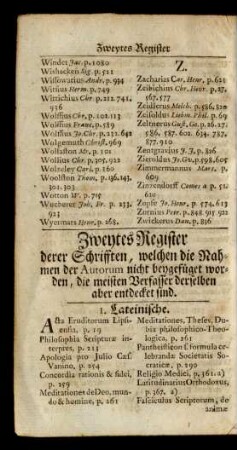 Zweytes Register
Winder Jac. p. 1080
Wishacken Sig. p. 511
Wissowatius Andr. p. 994
Witsius Herm. p. 749
Wittichius Chr. p. 212. 741,
936
Wolffius Chr. p. 102. 113
Wolfius Franc, p. 589
Wolffius Jo. Chr. p. 231. 641
Wolgemuth Christ. 969
Wollaston Mr. p. 101
Wolsius Chr. p. 305. 921
Wolzeley Carl. p. 160
Woolston Thom. p. 136. 143,
301. 303
Worton W. p. 715
Wucherer Joh. Fr. p. 233,
923
Wyermars Henr. p. 268.
Z.
Zacharias Car. Henr, p. 621
Zeibichius Chr. Henr. p. 27,
367. 577
Zeidlerus Melch. p. 586, 810
Zeisoldus Liebm. Phil. p. 69
Zeltnerus Gust. Ge. p. 26. 127,
586, 587. 602. 634. 787,
877. 910
Zentgravius J. J. p. 816
Zieroldus Jo. Gu. p. 598, 605
Zimmermannus Mars, p.
669
Zinzendorff Comes a p. 51,
610
Zopfe Jo. Henr. p. 613
Zornius Petr. p. 848. 915. 921
Zwickerus Dan. p. 896
Zweytes Register
derer Schrifften, welchen die Nah-
men der Autorum nicht beygefüget wor-
den, die meisten Verfasser derselben
aber entdecket sind.
1. Lateinische.
Acta Eruditorum Lipsi-
ensia, p. 19
Philosophia Scripturæ in-
terpres, p. 213
Apologia pro Julio Cæs.
Vanino, p. 254
Concordia rationis & fidei,
p. 259
Meditationes de Deo, mun-
do & homine, p. 261
Meditationes, Theses, Du-
bia philosophico-Theo-
logica, p. 261
Pantheisticon s. formula ce-
lebrandæ Societatis So-
craticæ, p. 290
Religio Medici, p. 361. a)
Latitudinarius Orthodoxus,
p. 367. a)
Fasciculus Scriptorum, de
animæ